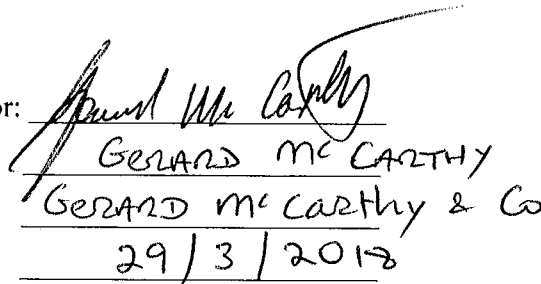 or: Gerard Mc Carthy
GERARD Mc CARTHY
GERARD Mc CARTHY & Co
29/3/2018